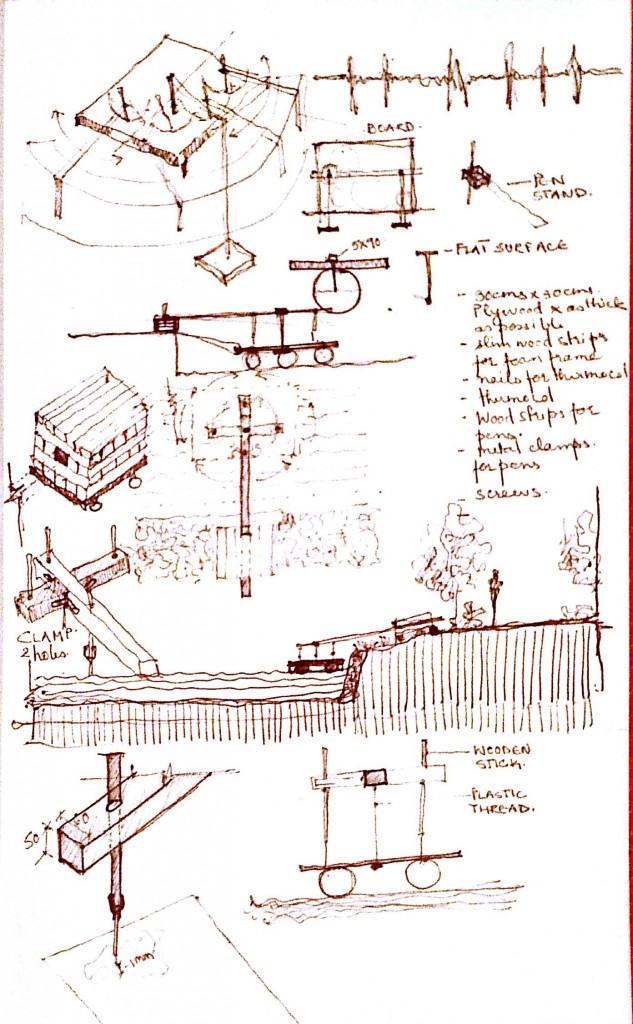 BOARD.
PEN
STAND.
5X90
FLAT SURFACE
- 30cms x 30cms.
Plywood x as thick
as possible
- slim wood strips
for foam frame
- nails for thermocol
- thermocol
- Wood strips for
pens.
- metal clamps.
for pens
- screws.
CLAMP
2 holes.
WOODEN
STICK.
PLASTIC
THREAD.
50
1mm